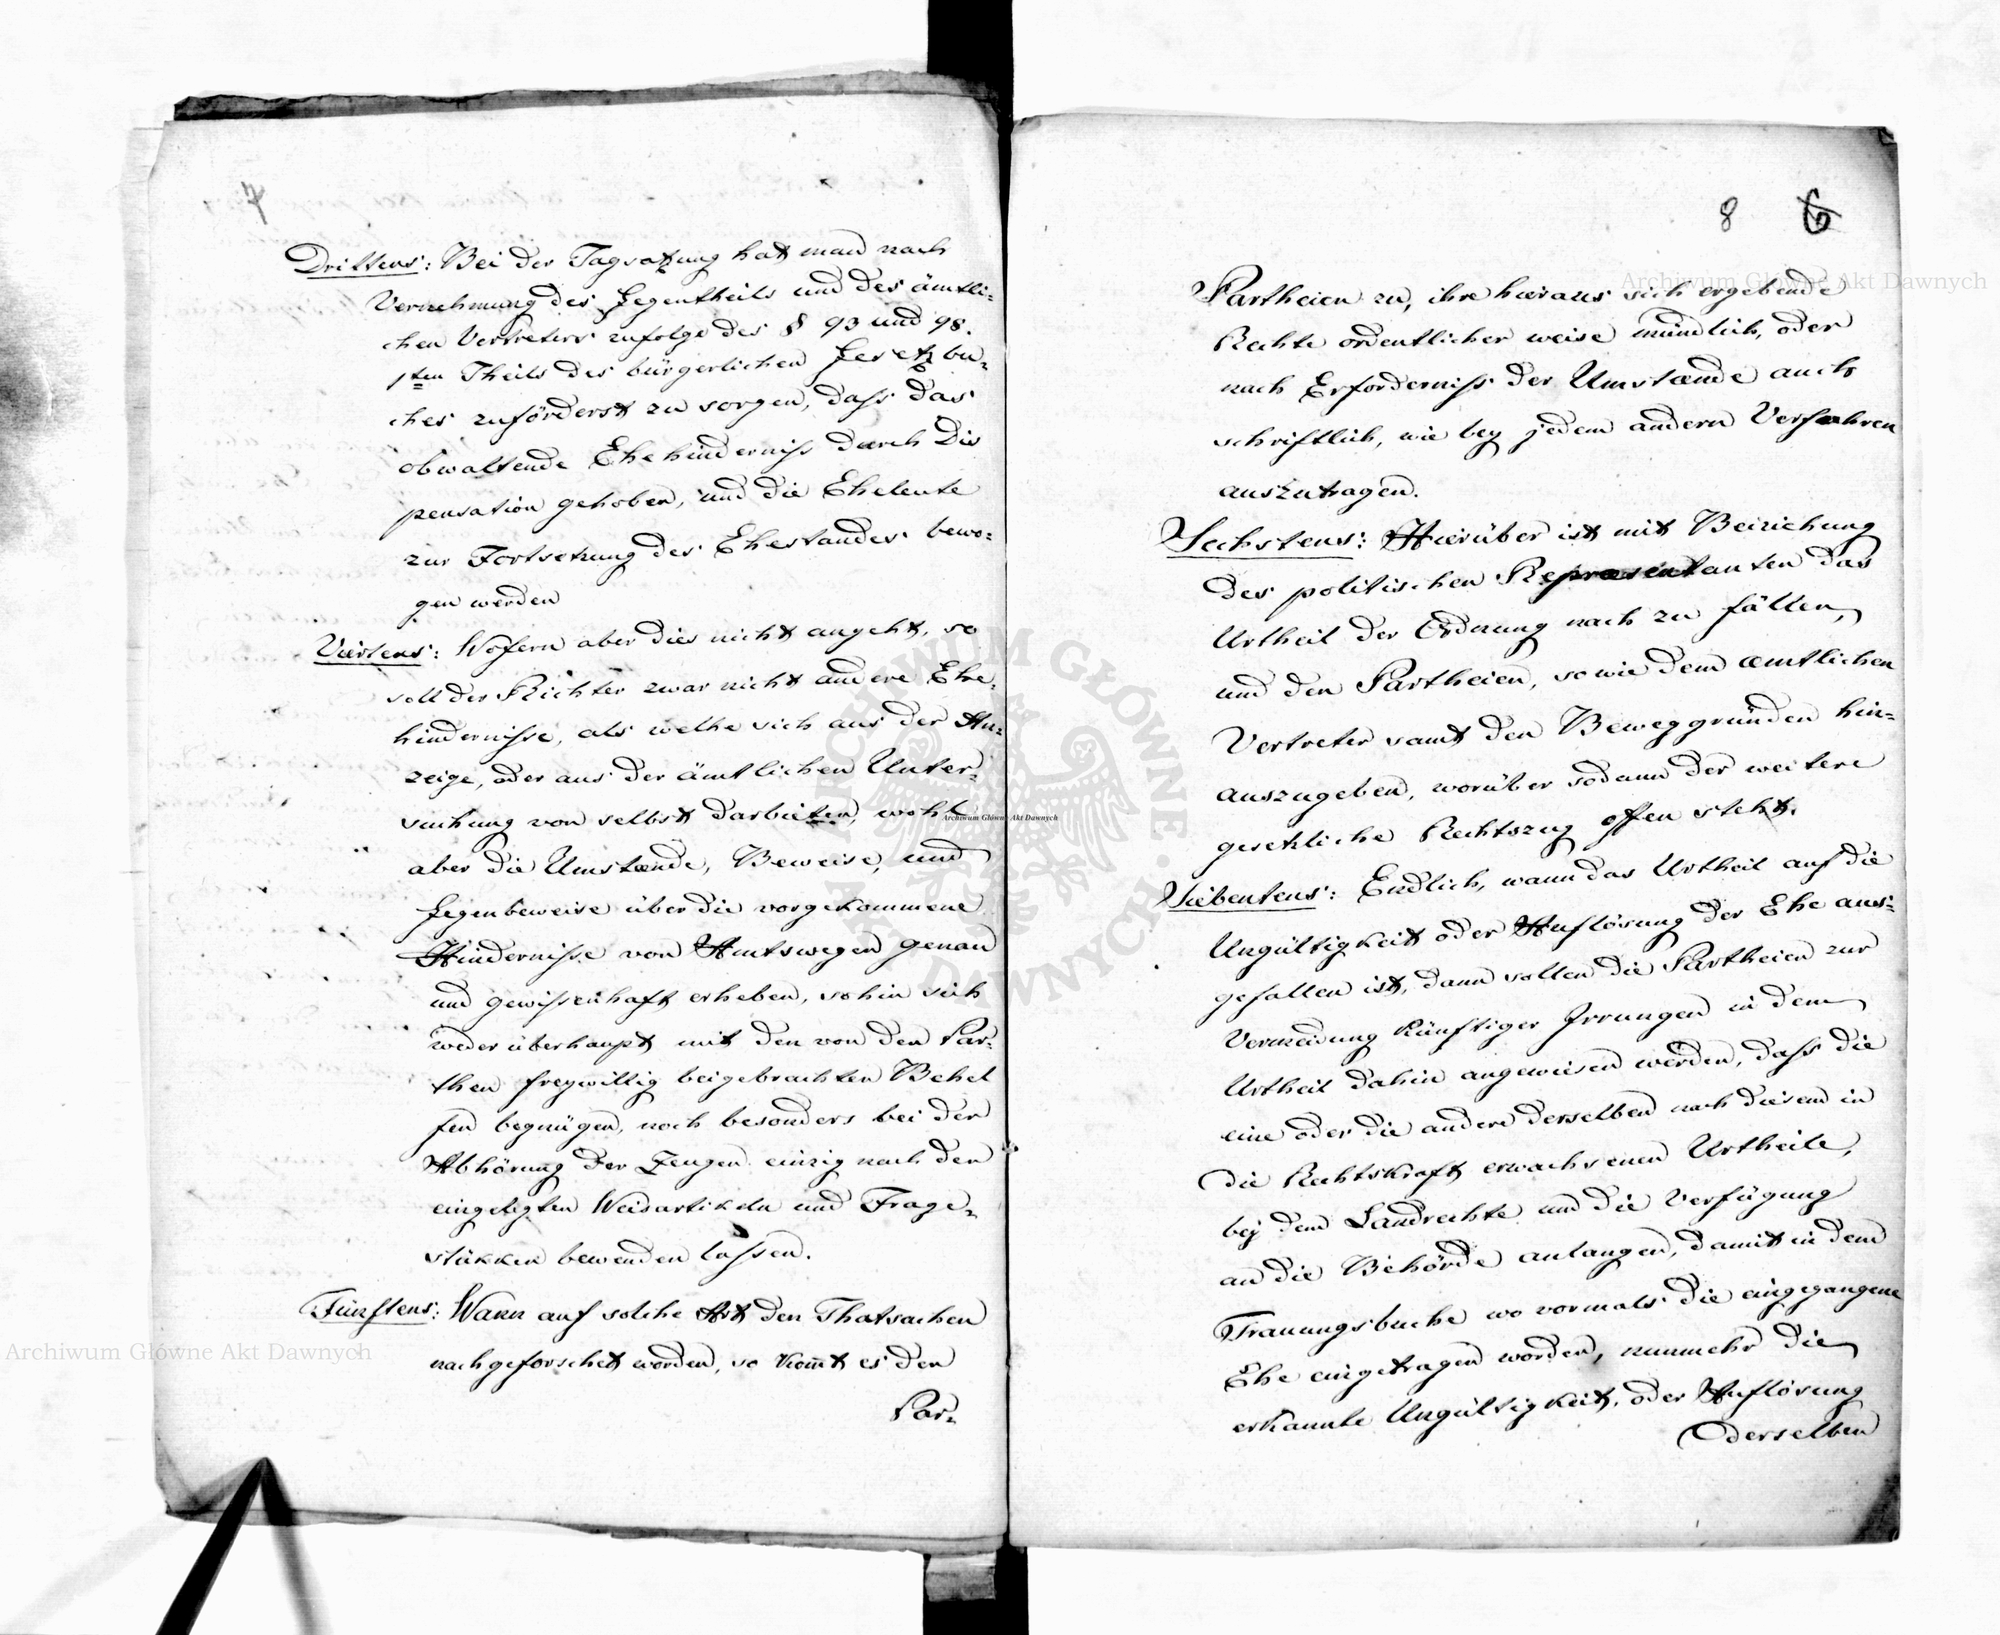 7
Drittens: Bei der Tagsatzung hat man nach
Vernehmung des Gegentheils und des ämtli-
chen Vertreters zufolge des § 93 und 98.
1ten Theils des bürgerlichen Gesetzbu-
ches zuförderst zu sorgen, dass das
obwaltende Ehehinderniss durch Dis
pensation gehoben, und die Eheleute
zur Fortsetzung des Ehestandes bewo-
gen werden
Viertens: Wofern aber dies nicht angeht, so
soll der Richter zwar nicht andere Ehe-
hindernisse, als welhe sich aus der An-
zeige, oder aus der ämtlichen Unter-
suchung von selbst darbieten, wohl
aber die Umstænde, Beweise, und
Gegenbeweise über die vorgekommene
Hindernisse von Amtswegen genau
und gewissenhaft erheben, sohin sich
weder überhaupt mit den von den Par-
then freywillig beigebrachten Behel
fen begnügen, noch besonders bei der
Abhörung der Zeugen einzig nach den
eingelegten Weisartikeln und Frage-
stükken bewenden lassen.
Fünftens: Wann auf solche Art den Thatsachen
nachgeforschet worden, so kom̅t es den
Par-
8 6
Partheien zu, ihre hieraus sich ergebende
Rechte ordentlicher weise mündlich, oder
nach Erforderniss der Umstænde auch
schriftlich, wie bey jedem andern Verfahren
auszutragen.
Sechstens: Hierüber ist mit Beiziehung
des politischen Repræsentanten das
Urtheil der Ordnung nach zu fällen,
und den Partheien, so wie dem æmtlichen
Vertreter samt den Beweggründen hin-
auszugeben, worüber sodann der weitere
gesetzliche Rechtszug offen steht.
Siebentens: Endlich, wann das Urtheil auf die
Ungültigkeit oder Auflösung der Ehe aus-
gefallen ist, dann sollen die Partheien zur
Vermeidung künftiger Irrungen in dem
Urtheil dahin angewiesen werden, dass die
eine oder die andere derselben nach diesem in
die Rechtskraft erwachsenen Urtheile,
bey dem Landrechte um die Verfügung
an die Behörde anlangen, damit in dem
Trauungsbuche wo vormals die eingegangene
Ehe eingetragen worden, nunmehr die
erkannte Ungültigkeit, oder Auflösung
derselben
Archiwum Główne Akt Dawnych
Archiwum Główne Akt Dawnych
Archiwum Główne Akt Dawnych
ARCHIWUM GŁÓWNE · AKT DAWNYCH ·